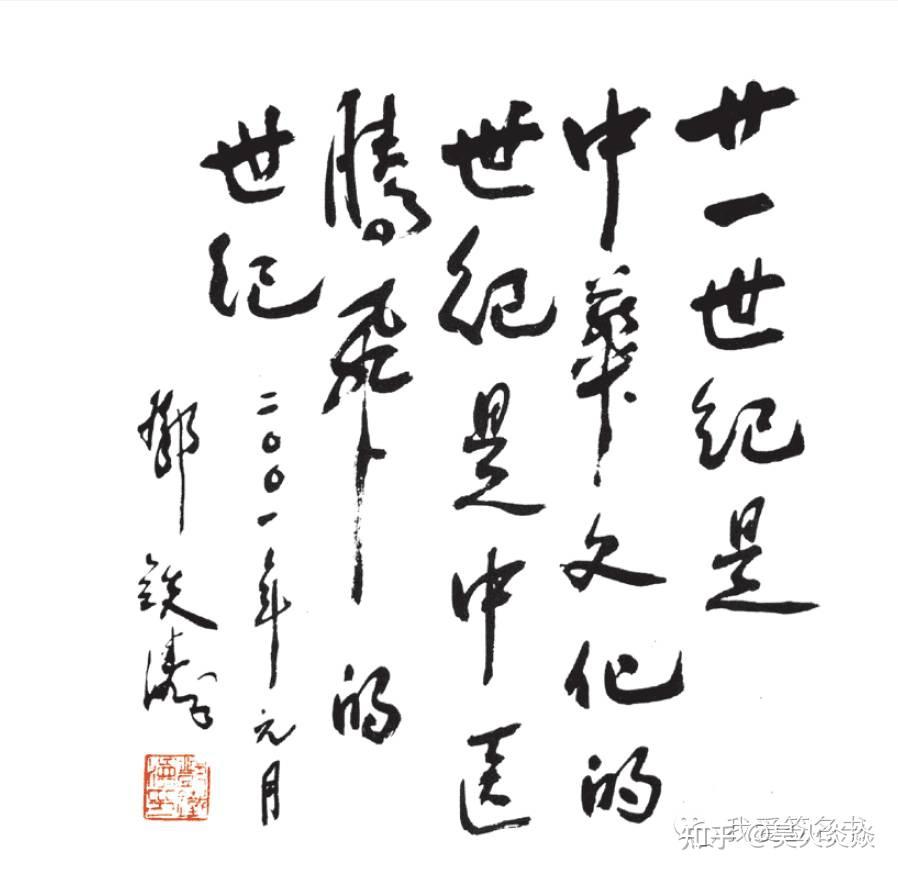 廿一世纪是
中華文化的
世纪是中医
腾飛的
世纪
二〇〇一年元月
鄧铁涛
知乎